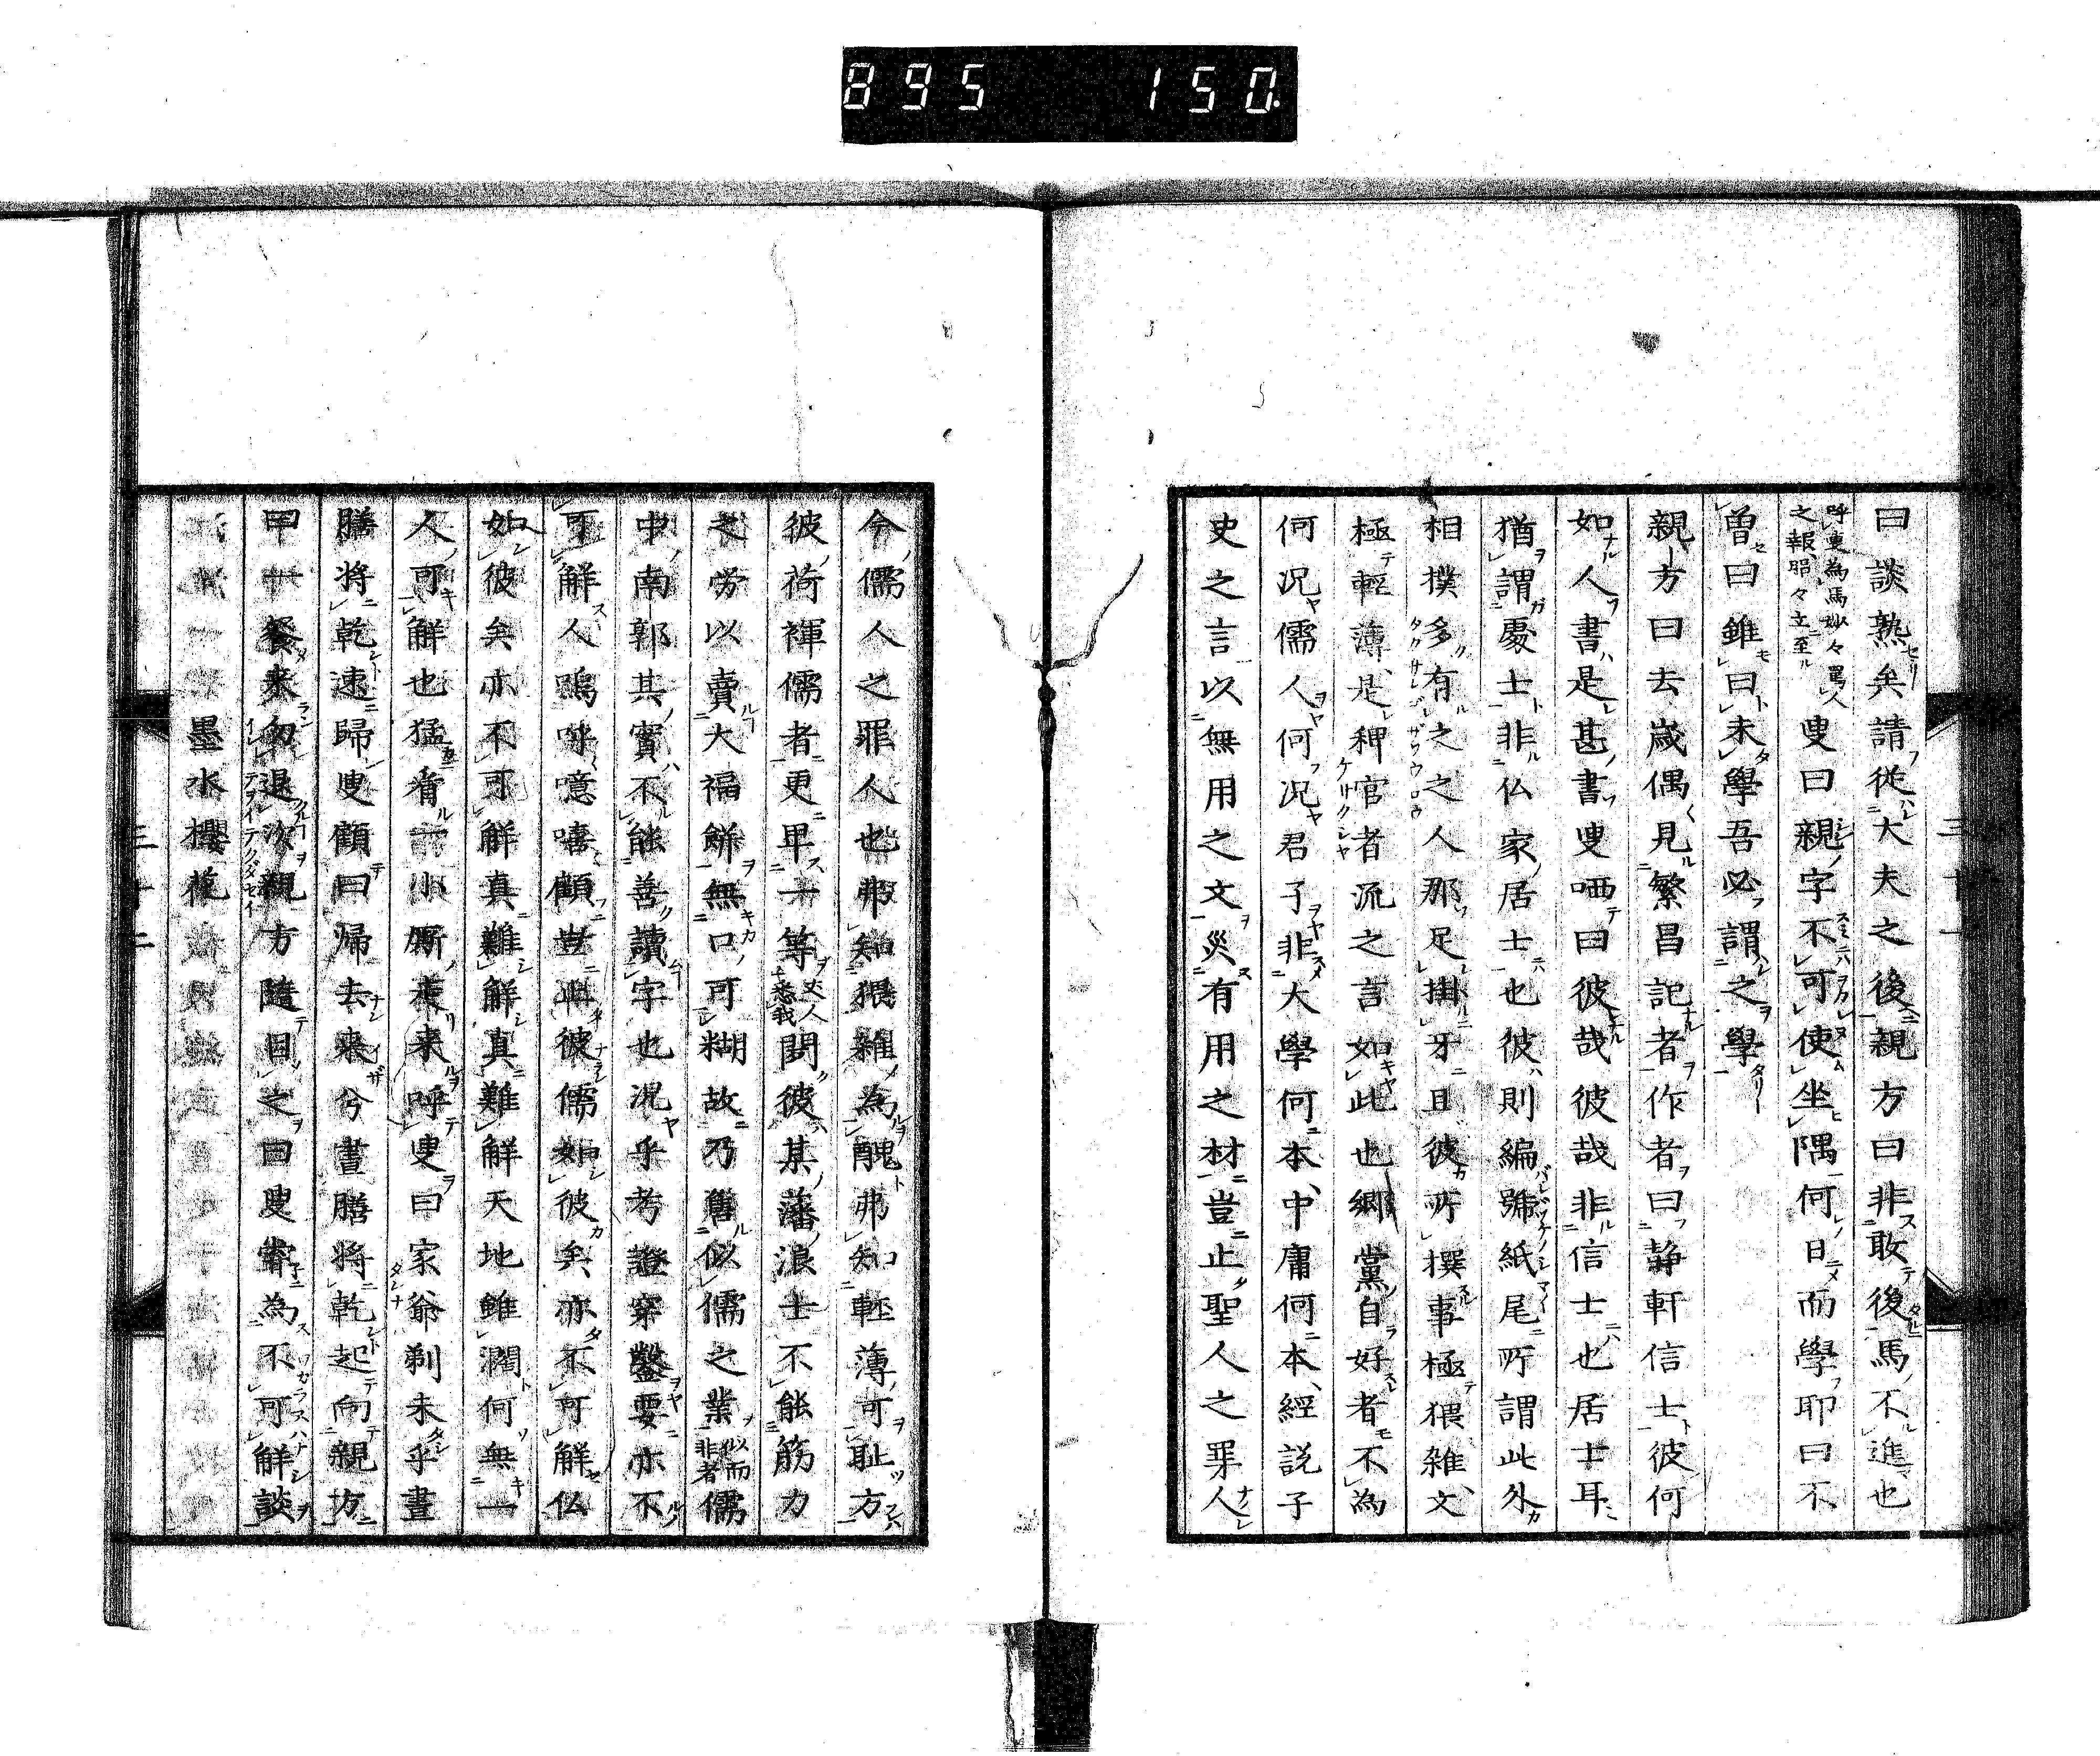 895 150
曰談熟矣請従大夫之後親方曰非敢後馬不進也
呼叟為馬妙々罵人之報昭々立至叟曰親字不可使坐隅何日而學耶曰不
曽曰雖曰未學吾必謂之學
親方曰去歳偶見繁昌記者作者曰静軒信士彼何
如人書是甚書叟哂曰彼哉彼哉非信士也居士耳
猶謂處士非仏家居士也彼則編號紙尾所謂此外
相撲多有之之人那足掛牙且彼所撰事極猥雑文
極軽薄是稗官者流之言如此也郷黨自好者不為
何况儒人何况君子非大學何本中庸何本經説子
史之言以無用之文災有用之材豈止聖人之罪人
今儒人之罪人也弗知猥雑為醜弗知軽薄可耻方
彼荷褌儒者更早一等丈人悉我聞彼某藩浪士不能筋力
之労以賣大福餅無口可糊故乃售似儒之業似而非者儒
中南郭其實不能善讀字也况乎考證穿鑿要亦不
可解人嗚呼噫嘻顧豈啻彼儒如彼矣亦不可解仏
如彼矣亦不可解真難解真難解天地雖濶何無一
人可解也猛看一小厮来呼叟曰家爺剃未乎晝
膳将乾速歸叟顧曰帰去来兮晝膳将乾起向親方
曰一餐来勿退次親方隨目之曰叟實為不可解談
墨水櫻花